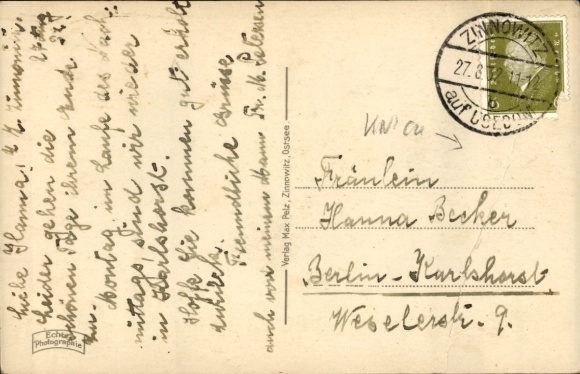 Liebe Hanna! z. Z. Zinnowitz
Leider gehen die
schönen Tage ihrem Ende
zu. Montag im Laufe des Nach-
mittags sind wir wieder
in Karlshorst.
Hoffe Sie kommen gut erholt
zurück.
Freundliche Grüsse
auch von meinem Mann Fr. M. Petersen
Echte
Photographie
Verlag Max Pelz, Zinnowitz, Ostsee.
ZINNOWITZ
27.8.32
b
auf USEDOM
Fräulein
Hanna Becker
Berlin-Karlshorst
Weselerstr. 9.